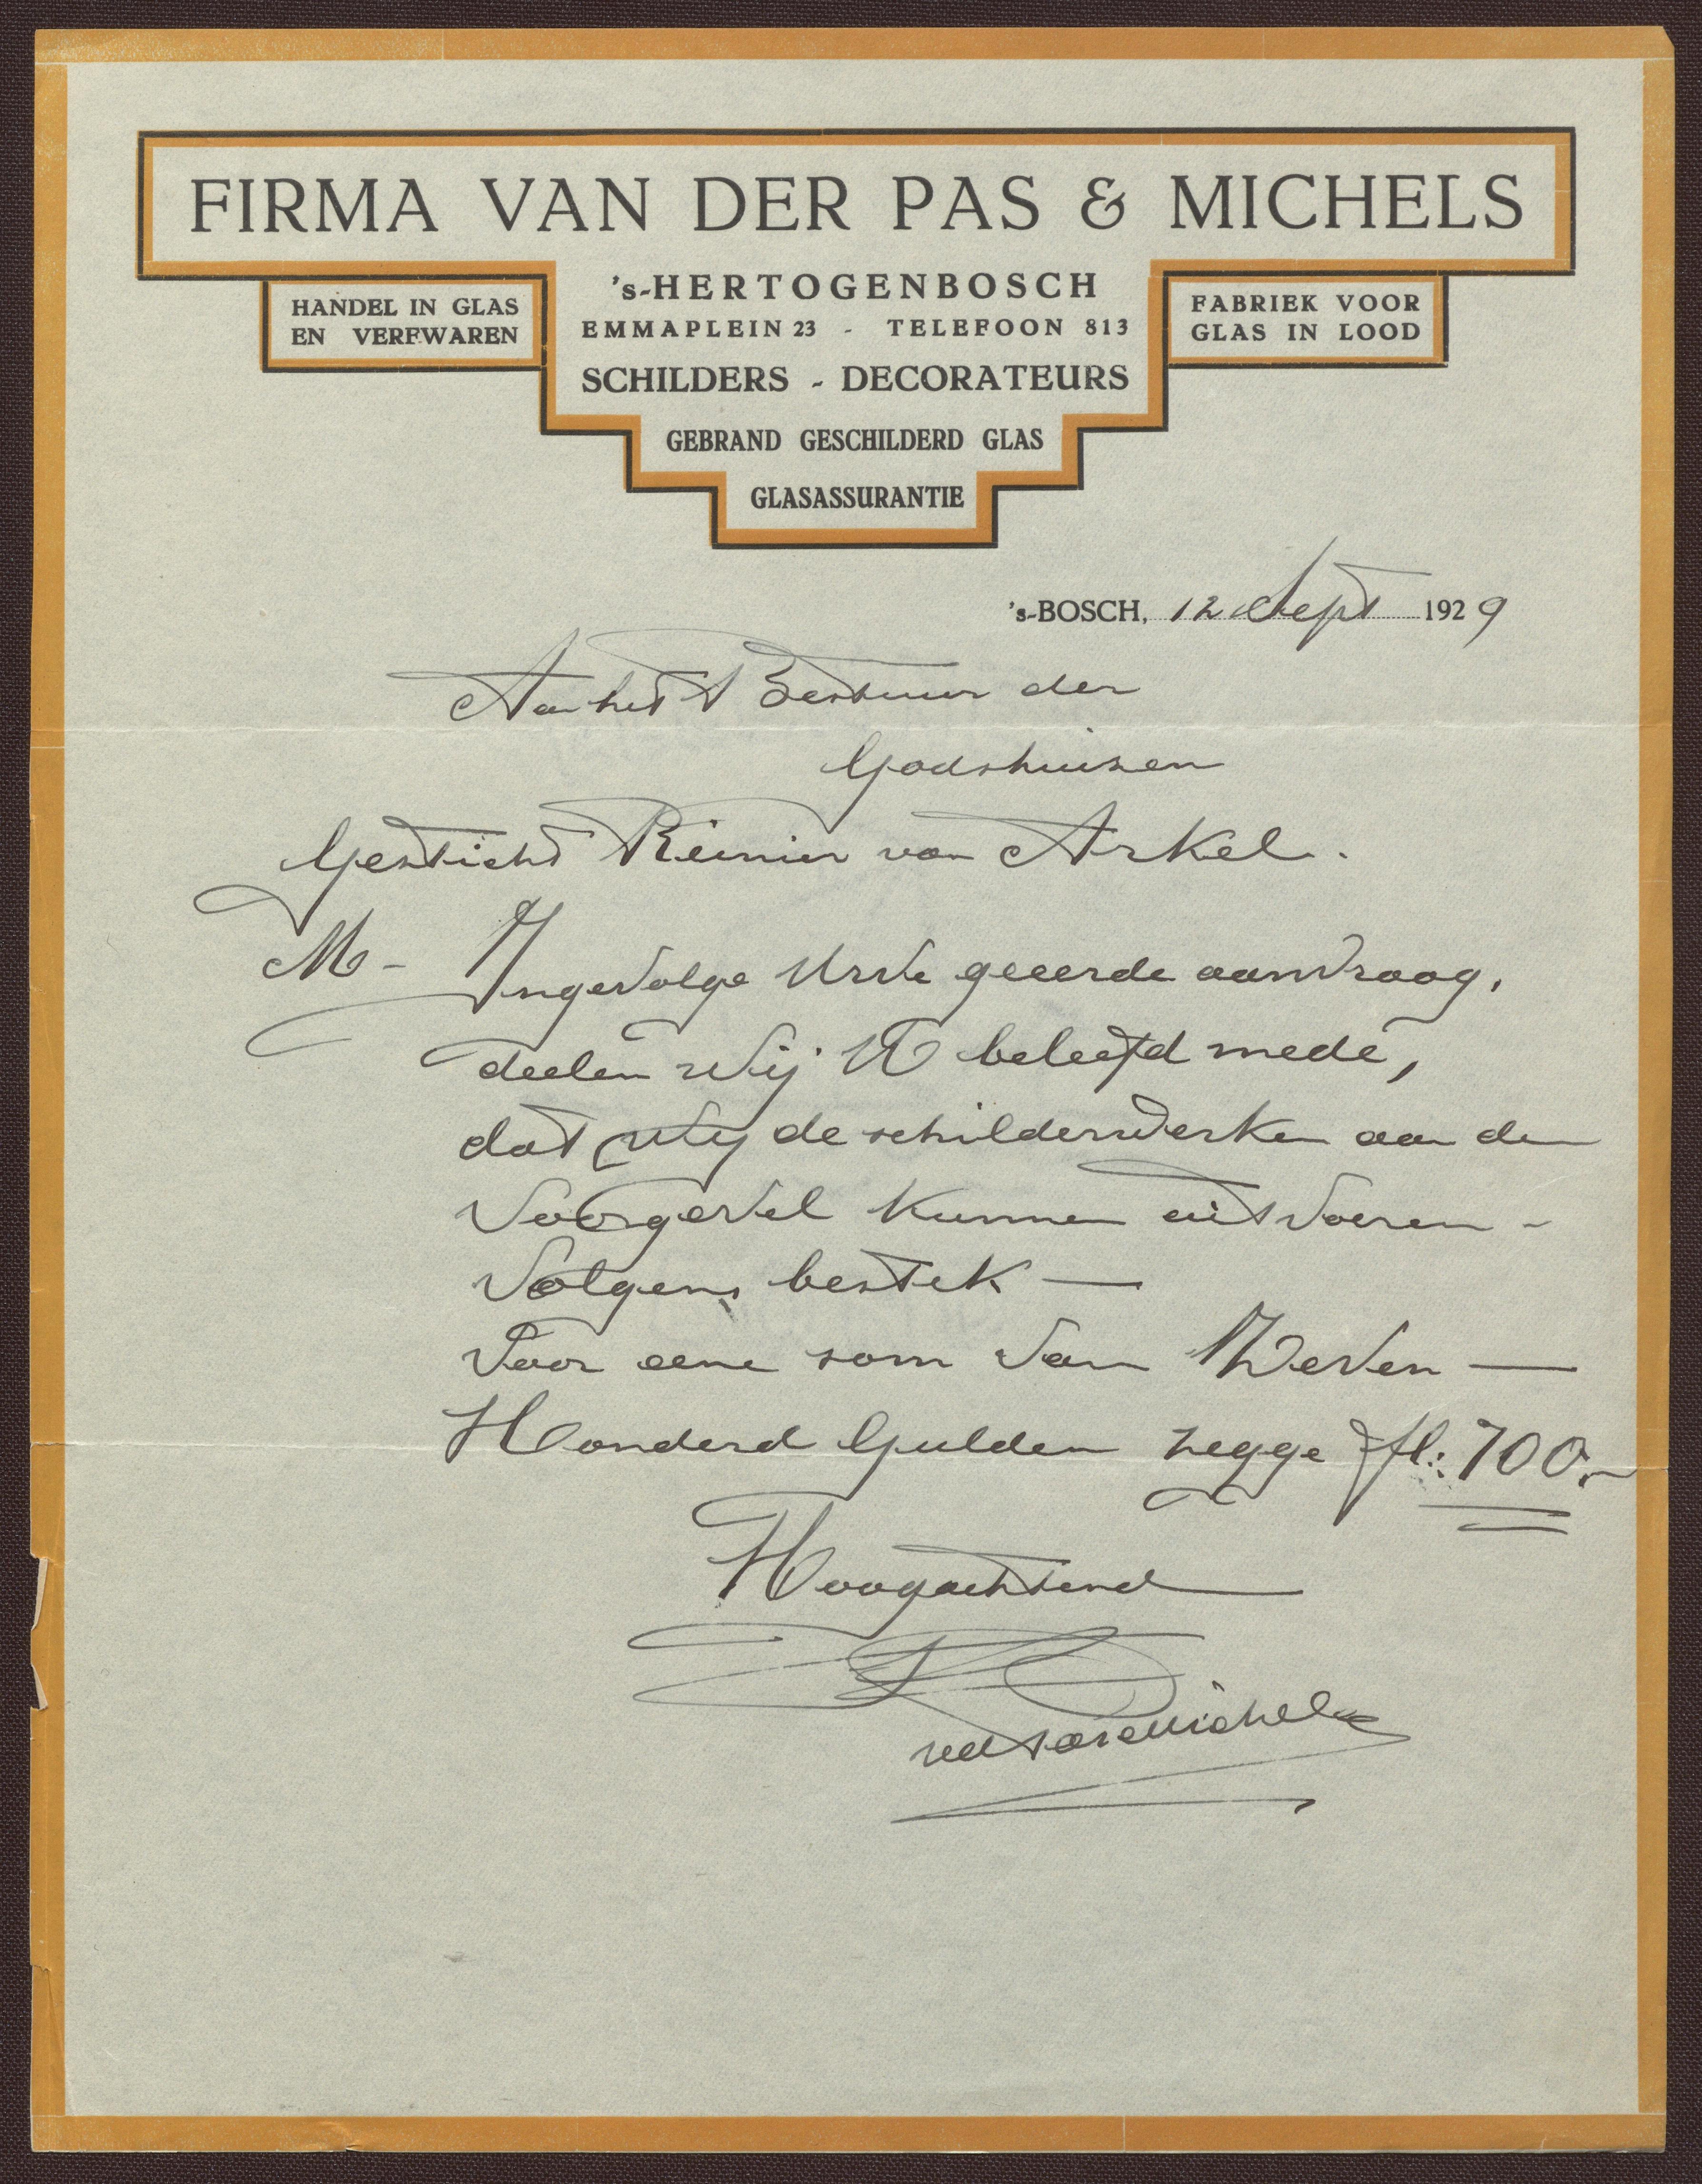 FIRMA VAN DER PAS & MICHELS
HANDEL IN GLAS
EN VERFWAREN
's-HERTOGENBOSCH
EMMAPLEIN 23 - TELEFOON 813
SCHILDERS - DECORATEURS
FABRIEK VOOR
GLAS IN LOOD
GEBRAND GESCHILDERD GLAS
GLASASSURANTIE
's-BOSCH, 12 Sept 1929
Aan het Bestuur der
Godshuizen
Gesticht Reinier van Arkel.
M- Ingevolge Urve geeerde aanvraag,
deelen wij U beleefd mede,
dat wij de schilderwerken aan den
Voorgevel kunnen uitvoeren -
Volgens bestek —
Voor eene som van Zeven —
Honderd Gulden zegge fl: 700.-
Hoogachtend
vd Pas & Michels